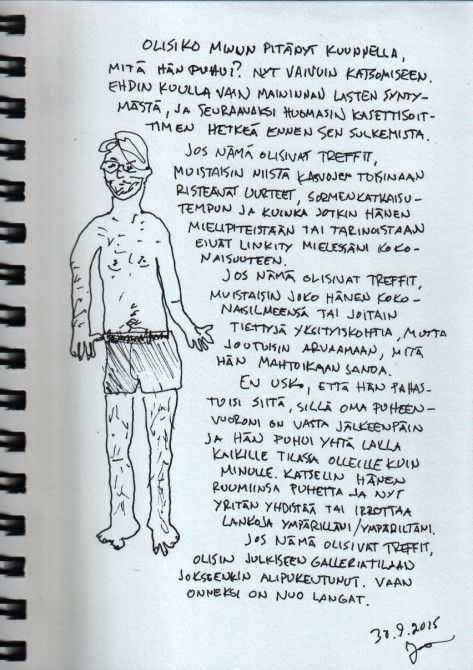 OLISIKO MINUN PITÄNYT KUUNNELLA,
MITÄ HÄN PUHUI? NYT VAIVUIN KATSOMISEEN.
EHDIN KUULLA VAIN MAININNAN LASTEN SYNTY-
MÄSTÄ, JA SEURAAVAKSI HUOMASIN KASETTISOIT-
TIMEN HETKEÄ ENNEN SEN SULKEMISTA.
JOS NÄMÄ OLISIVAT TREFFIT,
MUISTAISIN NIISTÄ KASVOJEN TOISINAAN
RISTEÄVÄT UURTEET, SORMENKATKAISU-
TEMPUN JA KUINKA JOTKIN HÄNEN
MIELIPITEISTÄÄN TAI TARINOISTAAN
EIVÄT LINKITY MIELESSÄNI KOKO-
NAISUUTEEN.
JOS NÄMÄ OLISIVAT TREFFIT,
MUISTAISIN JOKO HÄNEN KOKO-
NAISILMEENSÄ TAI JOITAIN
TIETTYJÄ YKSITYISKOHTIA, MUTTA
JOUTUISIN ARVAAMAAN, MITÄ
HÄN MAHTOIKAAN SANOA.
EN USKO, ETTÄ HÄN PAHAS-
TUISI SIITÄ, SILLÄ OMA PUHEEN-
VUORONI ON VASTA JÄLKEENPÄIN
JA HÄN PUHUI YHTÄ LAILLA
KAIKILLE TILASSA OLLEILLE KUIN
MINULLE. KATSELIN HÄNEN
RUUMIINSA PUHETTA JA NYT
YRITÄN YHDISTÄÄ TAI IRROTTAA
LANKOJA YMPÄRILLÄNI/YMPÄRILTÄNI.
JOS NÄMÄ OLISIVAT TREFFIT,
OLISIN JULKISEEN GALLERIATILAAN
JOKSEENKIN ALIPUKEUTUNUT. VAAN
ONNEKSI ON NUO LANGAT.
30.9.2015